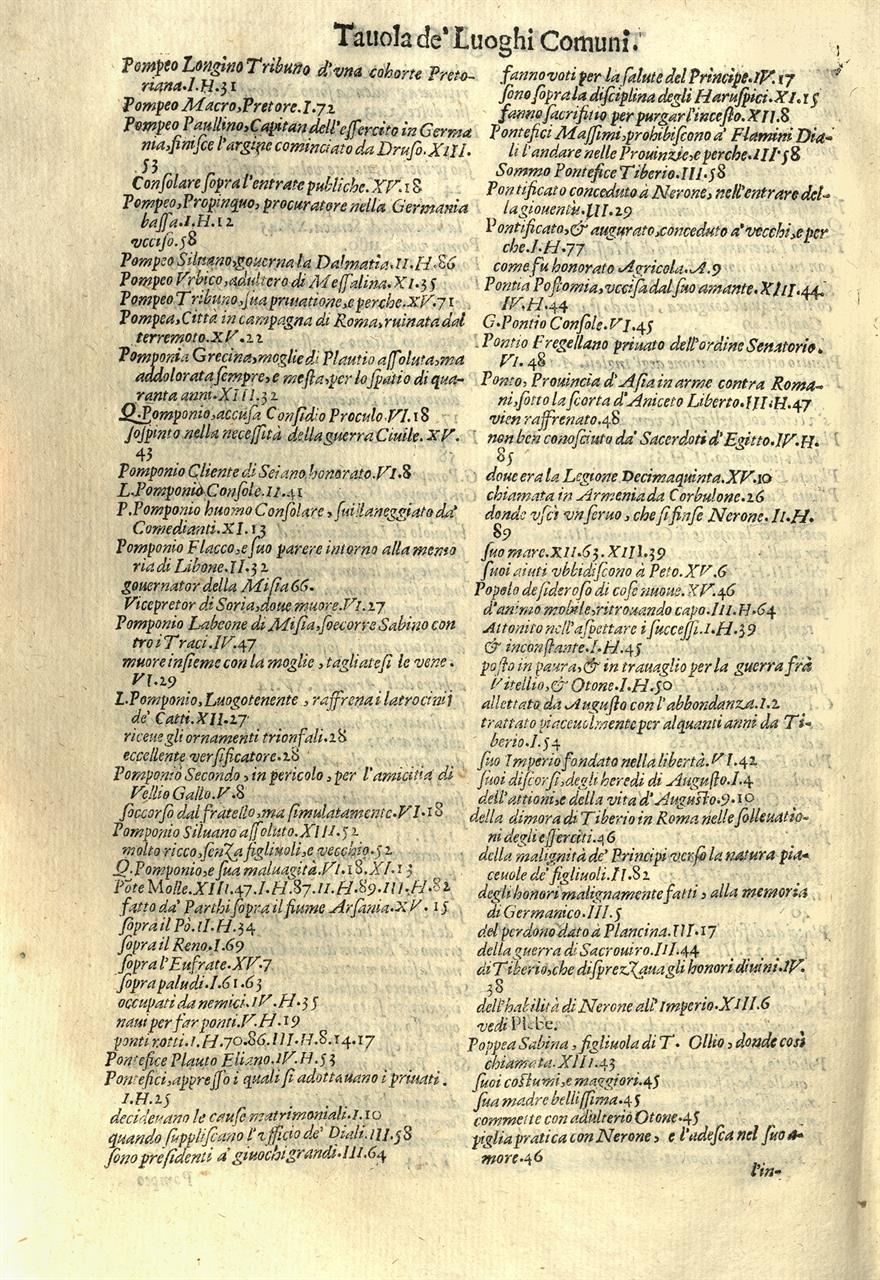 Tauola de' Luoghi Comuni.
Pompeo Longino Tribuno d'vna cohorte Preto-
riana.I.H.31
Pompeo Macro,Pretore.I.72
Pompeo Paullino,Capitan dell'eſſercito in Germa
nia,finiſce l'argine cominciato da Druſo.XIII.
53
Conſolare ſopra l'entrate publiche.XV.18
Pompeo,Propinquo, procuratore nella Germania
baſſa.I.H.12
vcciſo.58
Pompeo Siluano,gouerna la Dalmatia.II.H.86
Pompeo Vrbico,adultero di Meſſalina.XI.35
Pompeo Tribuno,ſua priuatione,e perche.XV.71
Pompea,Città in campagna di Roma,ruinata dal
terremoto.XV.22
Pomponia Grecina,moglie di Plautio aſſoluta,ma
addolorata ſempre,e meſta,per lo ſpatio di qua-
ranta anni.XIII.32
Q.Pomponio,accuſa Conſidio Proculo.VI.18
ſoſpinto nella neceſſità della guerra Ciuile. XV.
43
Pomponio Cliente di Seiano honorato.VI.8
L.Pomponio Conſole.II.41
P.Pomponio huomo Conſolare, ſuillaneggiato da'
Comedianti.XI.13
Pomponio Flacco,e ſuo parere intorno alla memo
ria di Libone.II.32
gouernator della Miſia 66.
Vicepretor di Soria,doue muore.VI.27
Pomponio Labeone di Miſia,ſoccorre Sabino con
tro i Traci.IV.47
muore inſieme con la moglie, tagliateſi le vene.
VI.29
L.Pomponio, Luogotenente, raffrena i latrocinij
de' Catti.XII.27
riceue gli ornamenti trionfali.28
eccellente verſificatore.28
Pomponio Secondo, in pericolo, per l'amicitia di
Vellio Gallo.V.8
ſoccorſo dal fratello,ma ſimulatamente.VI.18
Pomponio Siluano aſſoluto.XIII.52
molto ricco,ſenza figliuoli,e vecchio.52
Q.Pomponio,e sua maluagità.VI.18.XI.13
Pōte Molle.XIII.47.I.H.87.II.H.89.III.H.82
fatto da' Parthi ſopra il fiume Arſania.XV. 15
ſopra il Pò.II.H.34
ſopra il Reno.I.69
ſopra l'Eufrate.XV.7
ſopra paludi.I.61.63
occupati da nemici.IV.H.35
naui per far ponti.V.H.19
ponti rotti.I.H.70.86.III.H.8.14.17
Pontefice Plauto Eliano.IV.H.53
Pontefici,appreſſo i quali ſi adottauano i priuati.
I.H.25
decideuano le cauſe matrimoniali.I.10
quando ſuppliſcano l'vfficio de' Diali.III.58
ſono preſidenti a' giuochi grandi.III.64
fanno voti per la ſalute del Principe.IV.17
ſono ſopra la diſciplina degli Haruſpici.XI.15
fanno ſacrifitio per purgar l'inceſto.XII.8
Pontefici Maſſimi,prohibiſcono a' Flamini Dia-
li l'andare nelle Prouinzie,e perche.III.58
Sommo Pontefice Tiberio.III.58
Pontificato conceduto à Nerone, nell'entrare del-
la giouentù.III.29
Pontificato,& augurato,conceduto a' vecchi,e per
che.I.H.77
come fu honorato Agricola.A.9
Pontia Poſtomia, vcciſa dal ſuo amante.XIII.44.
IV.H.44
G.Pontio Conſole.VI.45
Pontio Fregellano priuato dell'ordine Senatorio.
VI.48
Ponto, Prouincia d'Aſia in arme contra Roma-
ni,ſotto la ſcorta d'Aniceto Liberto.III.H.47
vien raffrenato.48
non ben conoſciuto da' Sacerdoti d'Egitto.IV.H.
85
doue era la Legione Decimaquinta.XV.10
chiamata in Armenia da Corbulone.26
donde vſcì vn ſeruo, che ſi finſe Nerone. II.H.
89
ſuo mare.XII.63.XIII.39
ſuoi aiuti vbbidiſcono à Peto.XV.6
Popolo deſideroſo di coſe nuoue.XV.46
d'animo mobile,ritrouando capo.III.H.64
Attonito nell'aſpettare i ſucceſſi.I.H.39
& inconſtante.I.H.45
poſto in paura,& in trauaglio per la guerra frà
Vitellio,& Otone.I.H.50
allettato da Auguſto con l'abbondanza.I.2
trattato piaceuolmente per alquanti anni da Ti-
berio.I.54
ſuo Imperio fondato nella libertà.VI.42
ſuoi diſcorſi,degli heredi di Auguſto.I.4
dell'attioni,e della vita d'Auguſto.9.10
della dimora di Tiberio in Roma nelle ſolleuatio-
ni degli eſſerciti.46
della malignità de' Principi verſo la natura pia-
ceuole de' figliuoli.II.82
degli honori malignamente fatti, alla memoria
di Germanico.III.5
del perdono dato à Plancina.III.17
della guerra di Sacrouiro.III.44
di Tiberio,che diſprezzaua gli honori diuini.IV.
38
dell'habilità di Nerone all'Imperio.XIII.6
vedi Plebe.
Poppea Sabina, figliuola di T. Ollio, donde così
chiamata.XIII.43
ſuoi coſtumi,e maggiori.45
ſua madre belliſſima.45
commette con adulterio Otone.45
piglia pratica con Nerone, e l'adeſca nel ſuo a-
more.46
l'in-